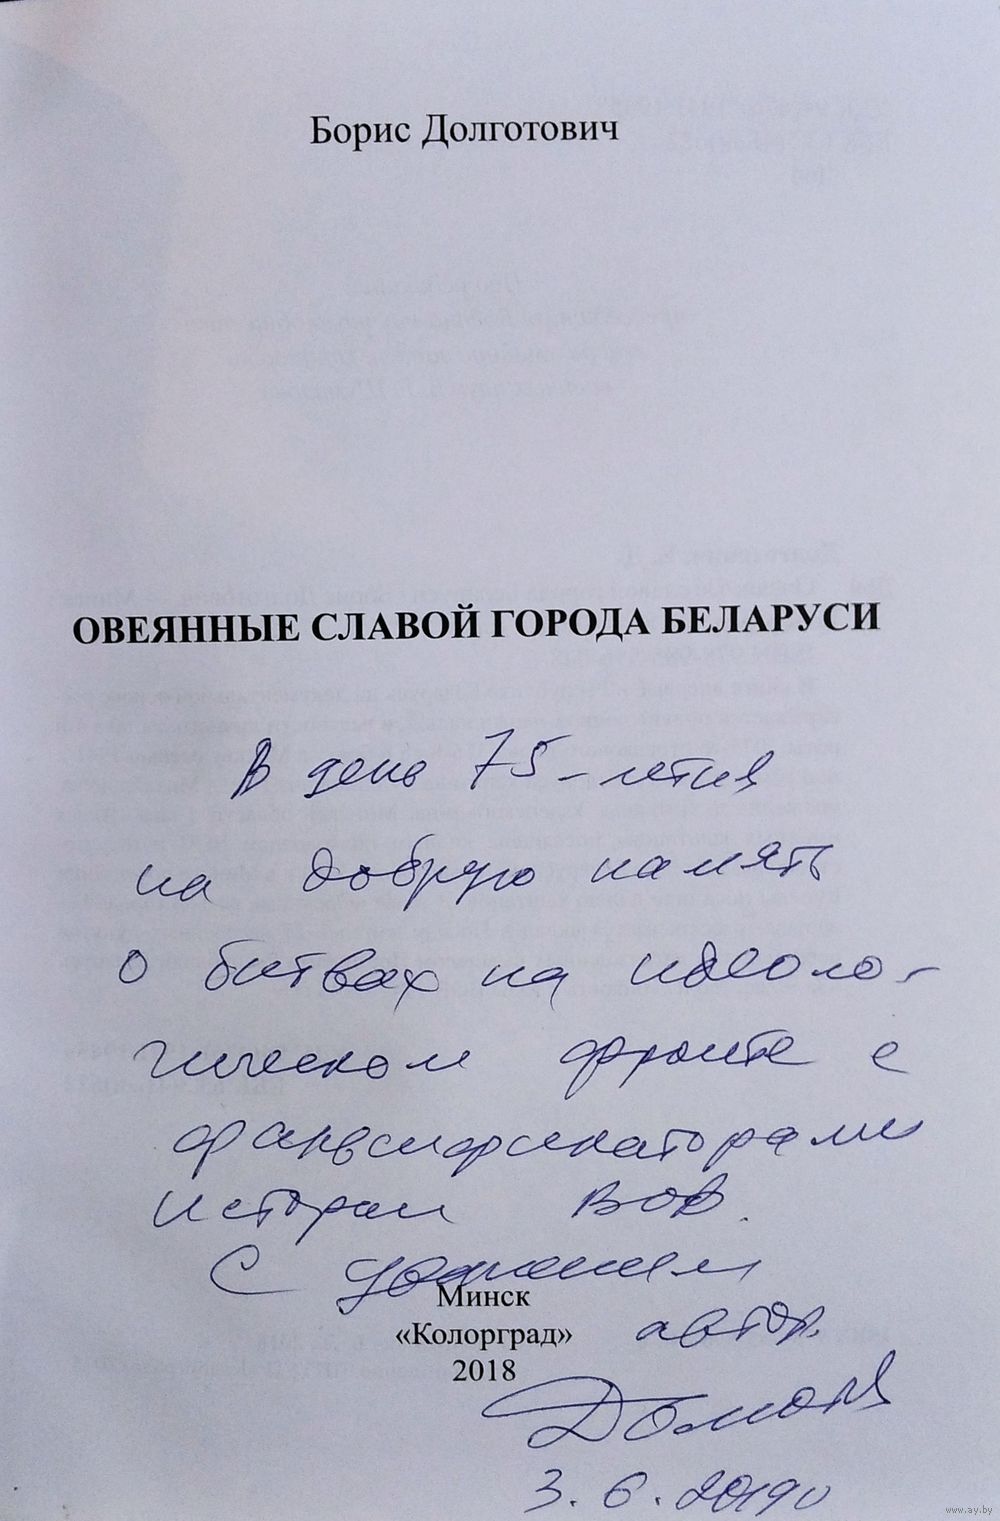 Борис Долготович
ОВЕЯННЫЕ СЛАВОЙ ГОРОДА БЕЛАРУСИ
В день 75-летия
на добрую память
о битвах на идеоло-
гическом фронте с
фальсификаторами
истории ВОВ.
С уважением
Минск
«Колорград»
автор.
2018
3.6.2019
www.ay.by